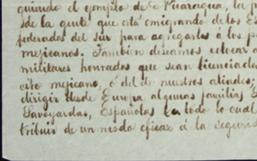 quiendo el ejemplo de Nicaragua, la
de la gente que está emigrando de los Es
federados del sur para agregarlos á los
mejicanos. También deseamos
militares honrados que sean licenciados
cito mejicano, ó del de nuestros aliados;
dirigir desde Europa algunas familias
Savoyardas, Españolas todo lo cual
tribuir de un modo eficaz á la seguridad